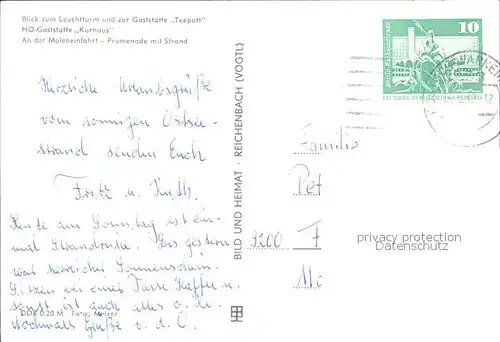 Blick zum Leuchtturm und zur Gaststätte „Teepott"
HO-Gaststätte „Kurhaus"
An der Moleneinfahrt – Promenade mit Strand
Herzliche Urlaubsgrüße
vom sonnigen Ostsee-
strand senden Euch
Fritz u. Ruth.
Heute am Sonntag ist ein-
mal Strandruhe. Bis gestern
war herrlicher Sonnenschein.
Sitzen bei einer Tasse Kaffee u.
sonst ist auch alles o.k.
Nochmals Grüße v. d. O.
DDR 0,20 M Foto: Melzer
BILD UND HEIMAT · REICHENBACH (VOGTL)
10
DEUTSCHE DEMOKRATISCHE REPUBLIK
12
Familie
Pet
9200 F
privacy protection
Datenschutz